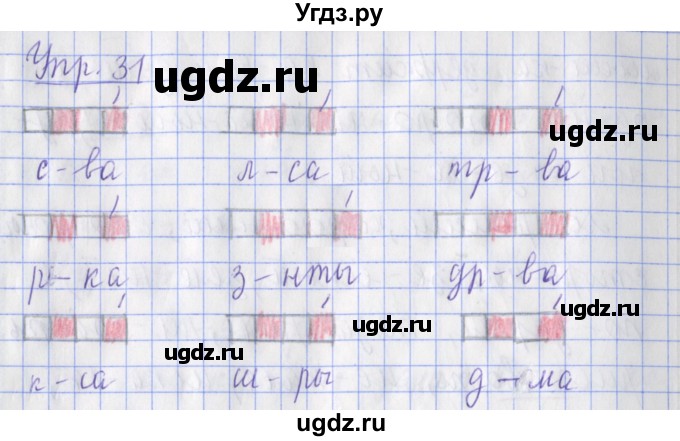 Угдз.ру
Упр. 31
ugdz.ru
ugdz.ru
ugdz.ru
с - ва л - са тр - ва
р - ка з - нты др - ва
ugdz.ru
ugdz.ru
ugdz.ru
к - са ш - ры д - ма
ugdz.ru